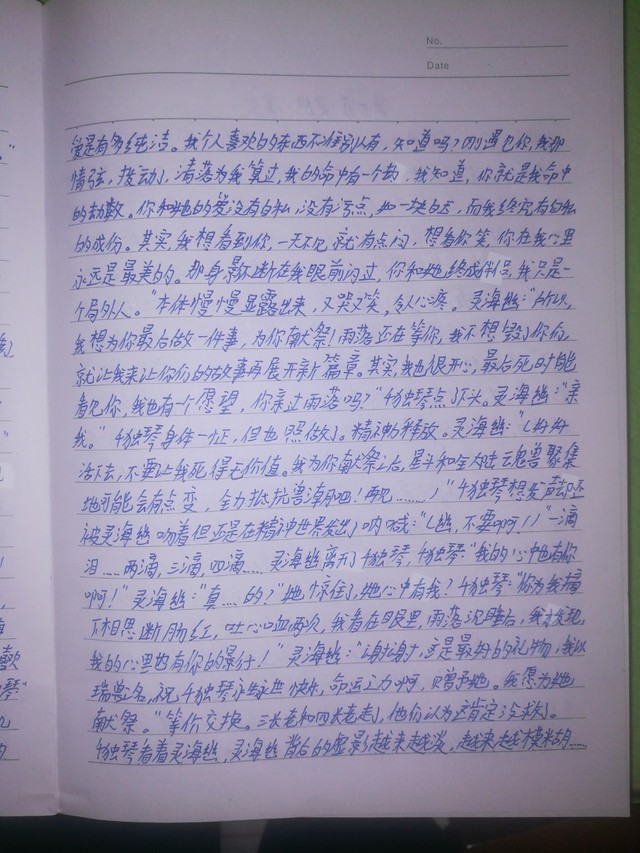 No.
Date
爱是有多纯洁。我个人喜欢的东西不准别人有，知道吗？叮！遇见你，我那
情弦，拨动，清落为我算过，我的命中有一劫，我知道，你就是我命中
的劫数。你和她的爱没有自私，没有污点，如一块白玉，而我终究有自私
的成份。其实，我想看到你，一天不见，就有点闷，想着你笑，你在我心里
永远是最美的。那身影不断在我眼前闪过，你和她终成伴侣，我只是一
个局外人。”本体慢慢显露出来，又哭又笑，令人心疼。灵海幽：“所以，
我想为你最后做一件事，为你献祭！雨落还在等你，我不想毁了你们，
就让我来让你们的故事再展开新篇章。其实我也很开心，最后死时能
看见你，我也有个愿望，你亲过雨落吗？”千独琴点了下头。灵海幽：“亲
我。”千独琴身体一怔，但也照做了。精神力释放。灵海幽：“好好
活下去，不要让我死得毫无价值。我为你献祭之后，星斗和全大陆魂兽聚集
地可能会有点变，全力抵抗兽潮吧！再见……！”千独琴想发声却还
被灵海幽吻着但还是在精神世界发出了呐喊：“幽，不要啊！！”一滴
泪……两滴，三滴，四滴……灵海幽离开了千独琴，千独琴：“我的心中也有你
啊！”灵海幽：“真……的？”她惊住，她心中有我？千独琴：“你为我摘
下相思断肠红，吐心血两次，我看在眼里，雨落沉睡后，我才发现，
我的心里也有你的影什！”灵海幽：“谢谢，这是最好的礼物，我以
瑞兽之名，祝千独琴永永远远快乐，命运之力啊，赠予她。我愿为她
献祭。”等价交换。三长老和四长老走了，他们以为这肯定没救了。
千独琴看着灵海幽，灵海幽背后的虚影越来越淡，越来越模糊……